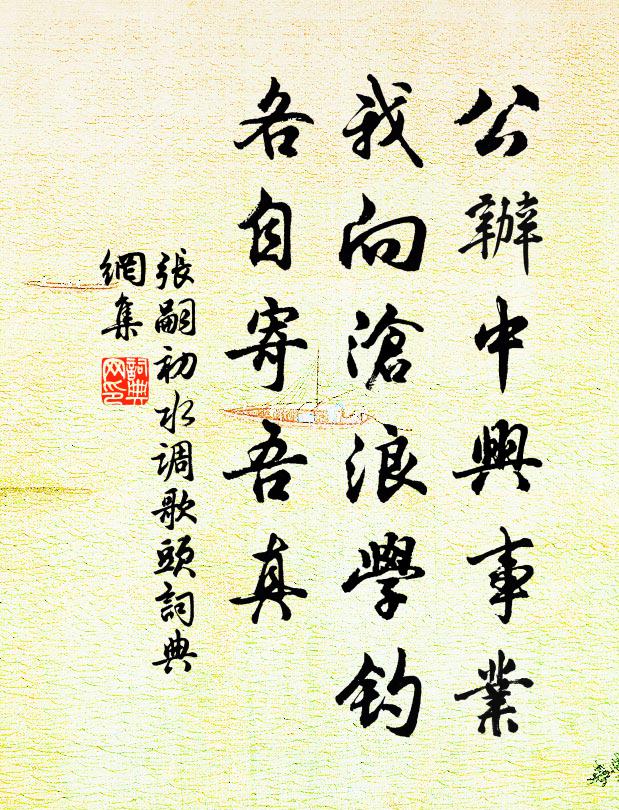 公辦中興事業
我向滄浪學釣
各自寄吾真
張嗣初水调歌頭詞典
網集
詞典
网印